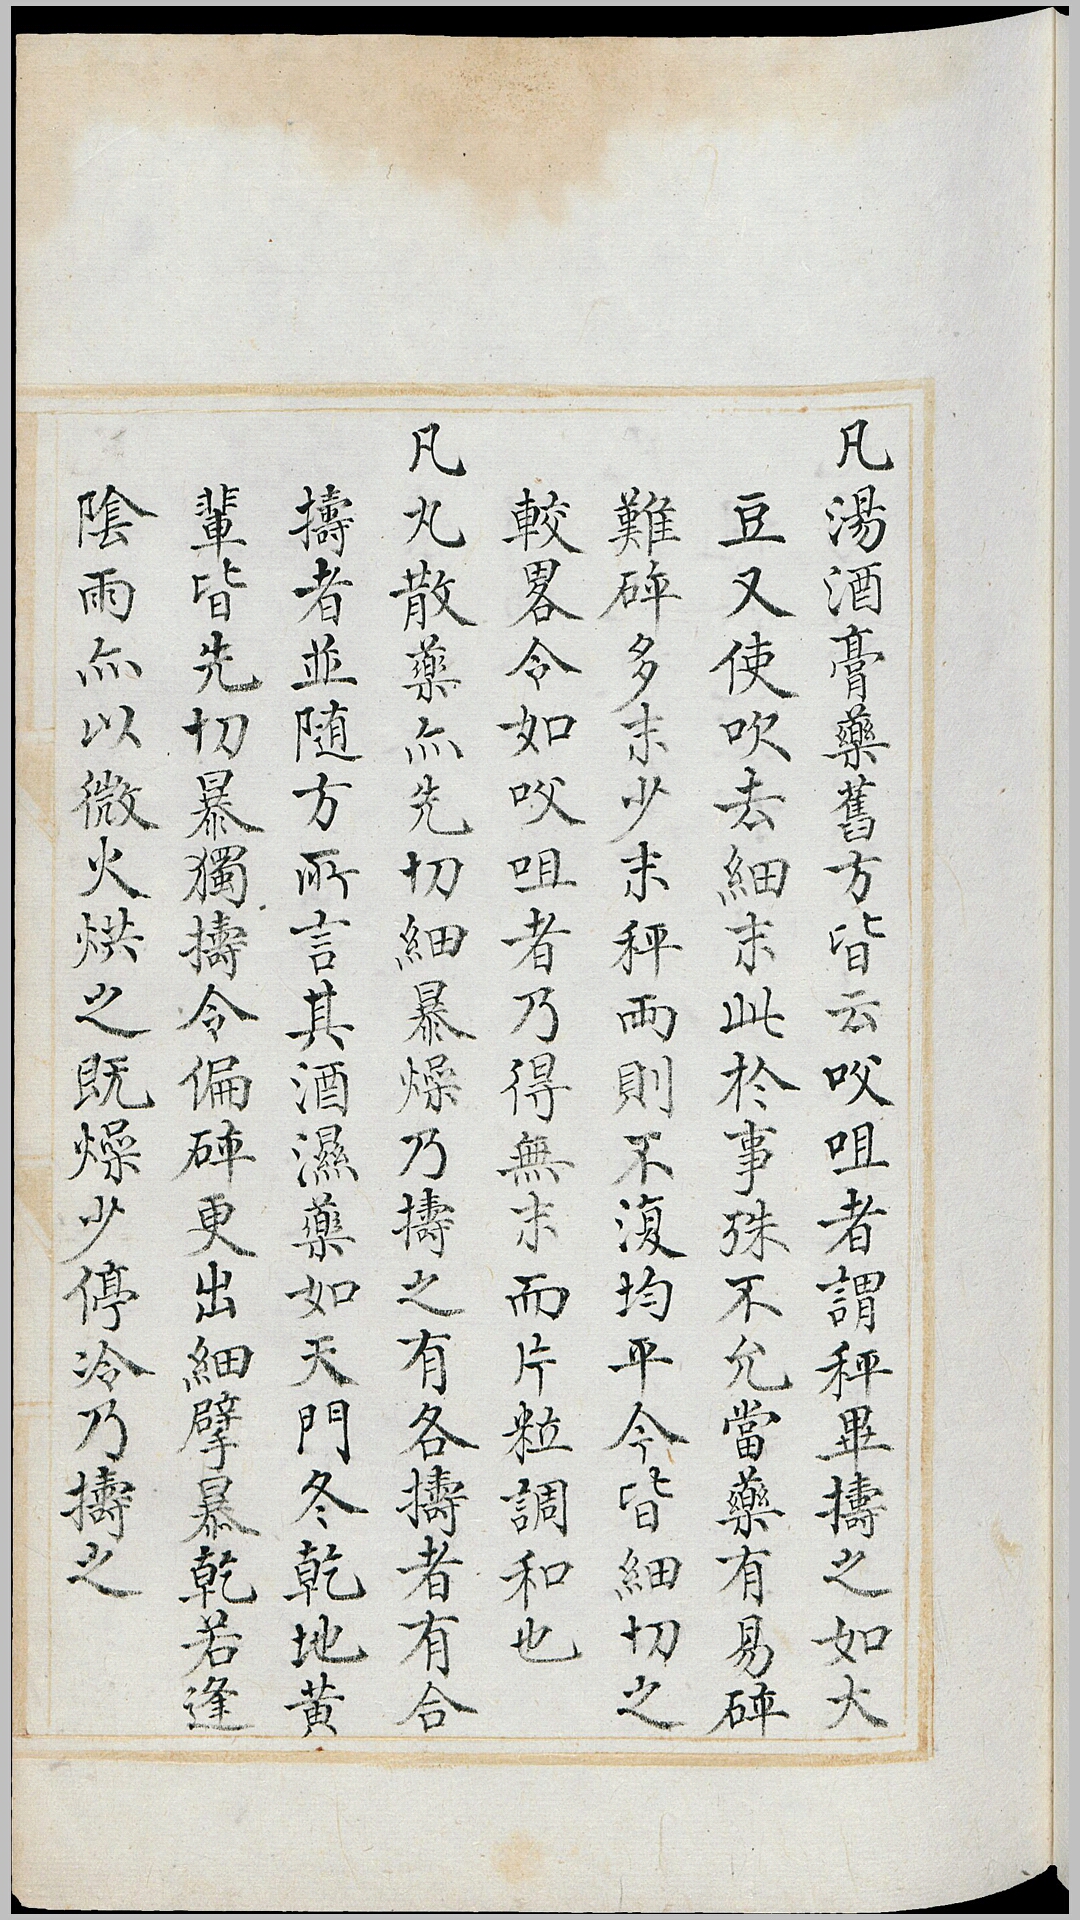 凡湯酒膏藥舊方皆云㕮咀者謂秤畢擣之如大
豆又使吹去細末此於事殊不允當藥有易碎
難碎多末少末秤兩則不復均平今皆細切之
較畧令如㕮咀者乃得無末而片粒調和也
凡丸散藥亦先切細暴燥乃擣之有各擣者有合
擣者並随方所言其酒濕藥如天門冬乾地黄
輩皆先切暴獨擣令偏碎更出細擘暴乾若逢
陰雨亦以微火烘之既燥少停冷乃擣之